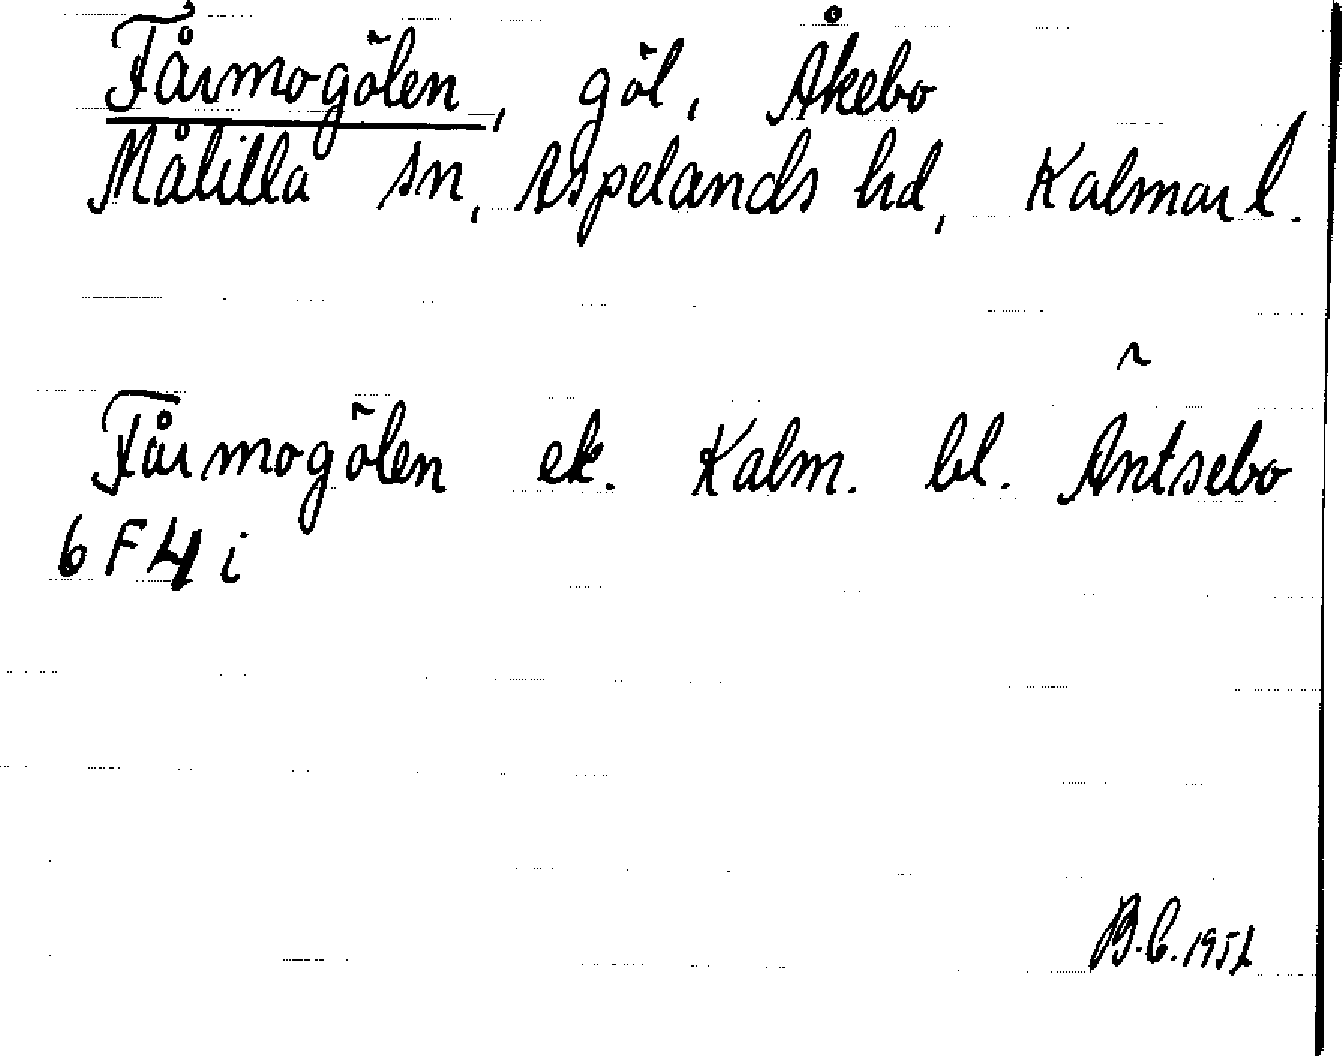 Fårmogölen, göl, Åkebo
Målilla sn, Aspelands hd, Kalmar l.
Fårmogölen ek. Kalm. bl. Äntsebo
6 F 4 i